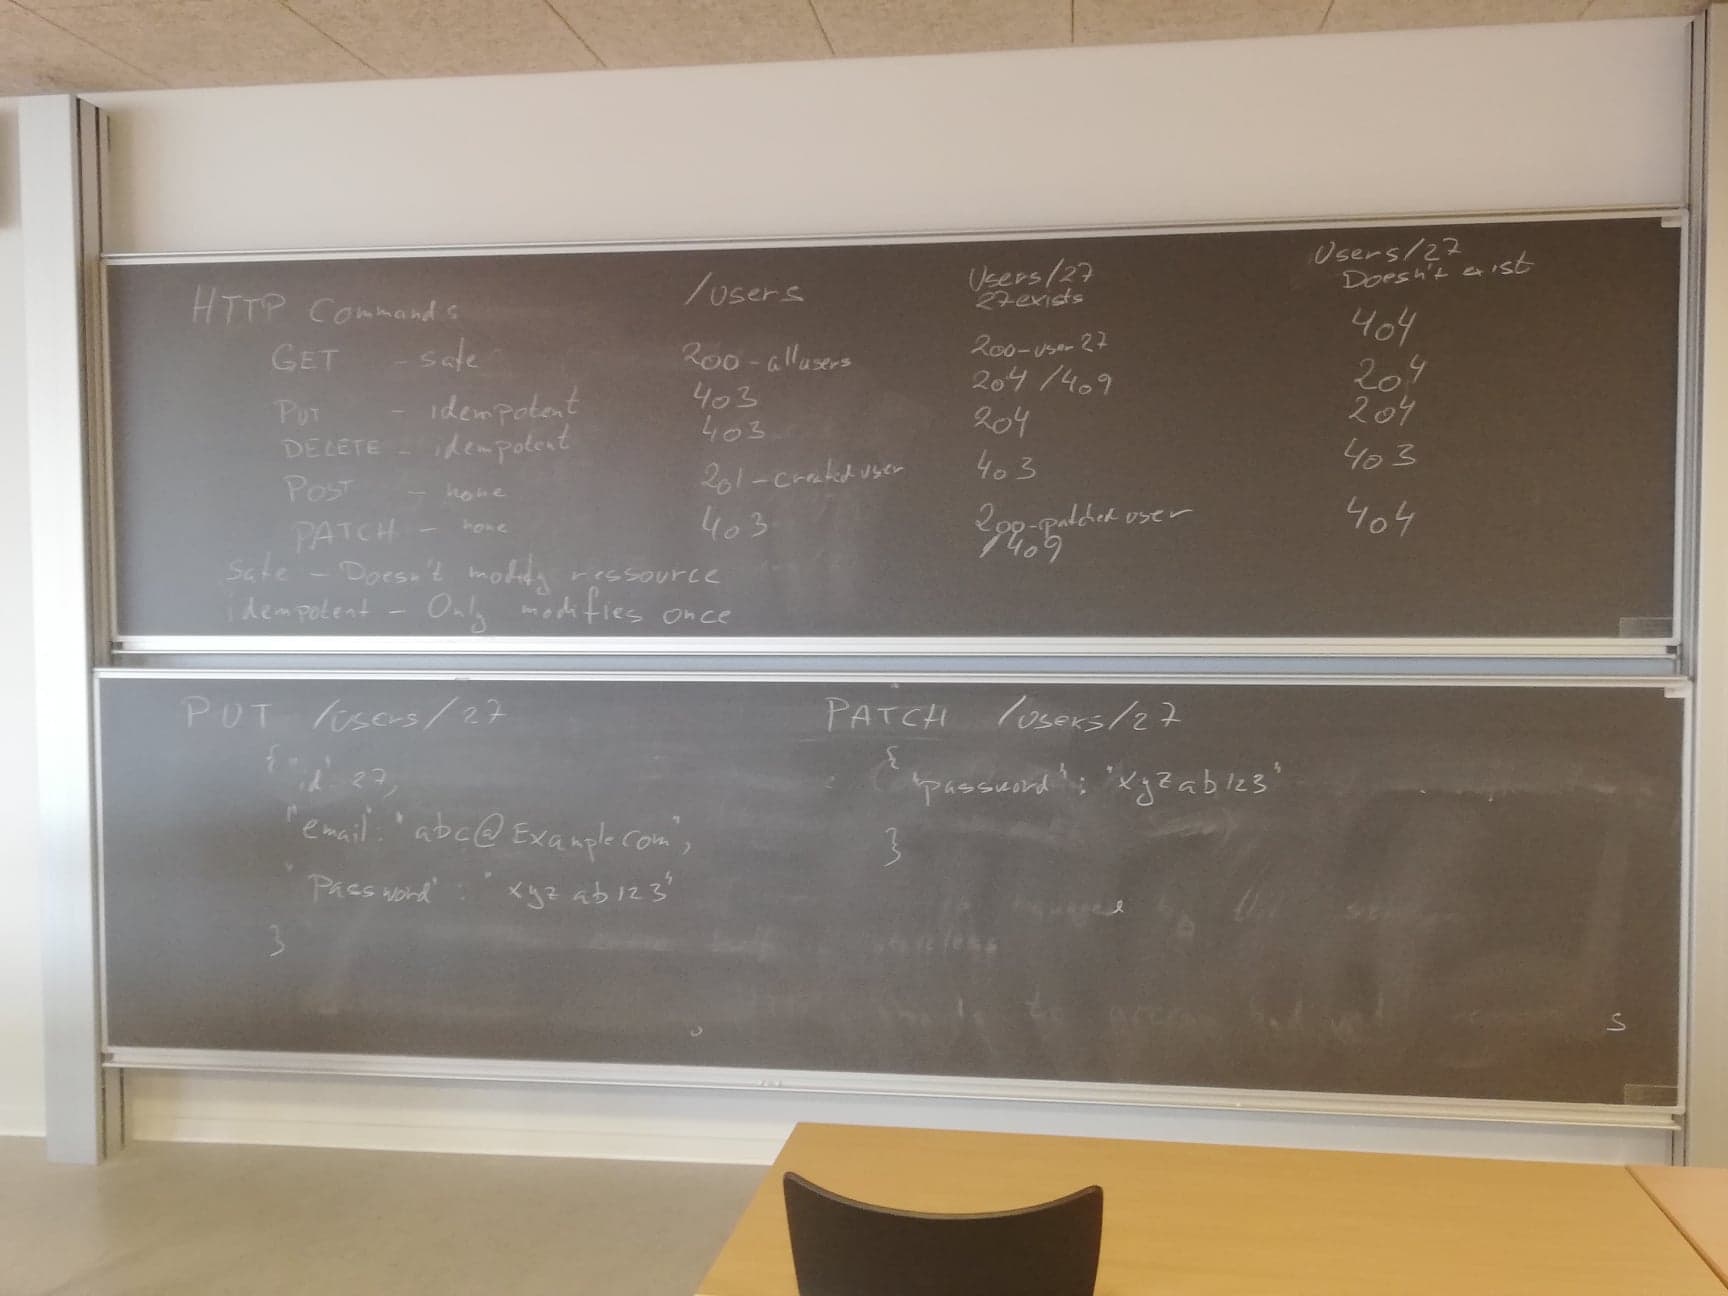 HTTP Commands /users Users/27 Users/27
27 exists Doesn't exist
GET - safe 200 - all users 200 - user 27 404
PUT - idempotent 403 204 / 409 204
DELETE - idempotent 403 204 204
POST - none 201 - created user 403 403
PATCH - none 403 200 - patched user 404
/ 409
safe - Doesn't modify ressource
idempotent - Only modifies once
PUT /users/27 PATCH /users/27
{ "id" 27, {
"email": "abc@Example.com", "password": "xyzab123"
"Password": "xyzab123" }
}
s